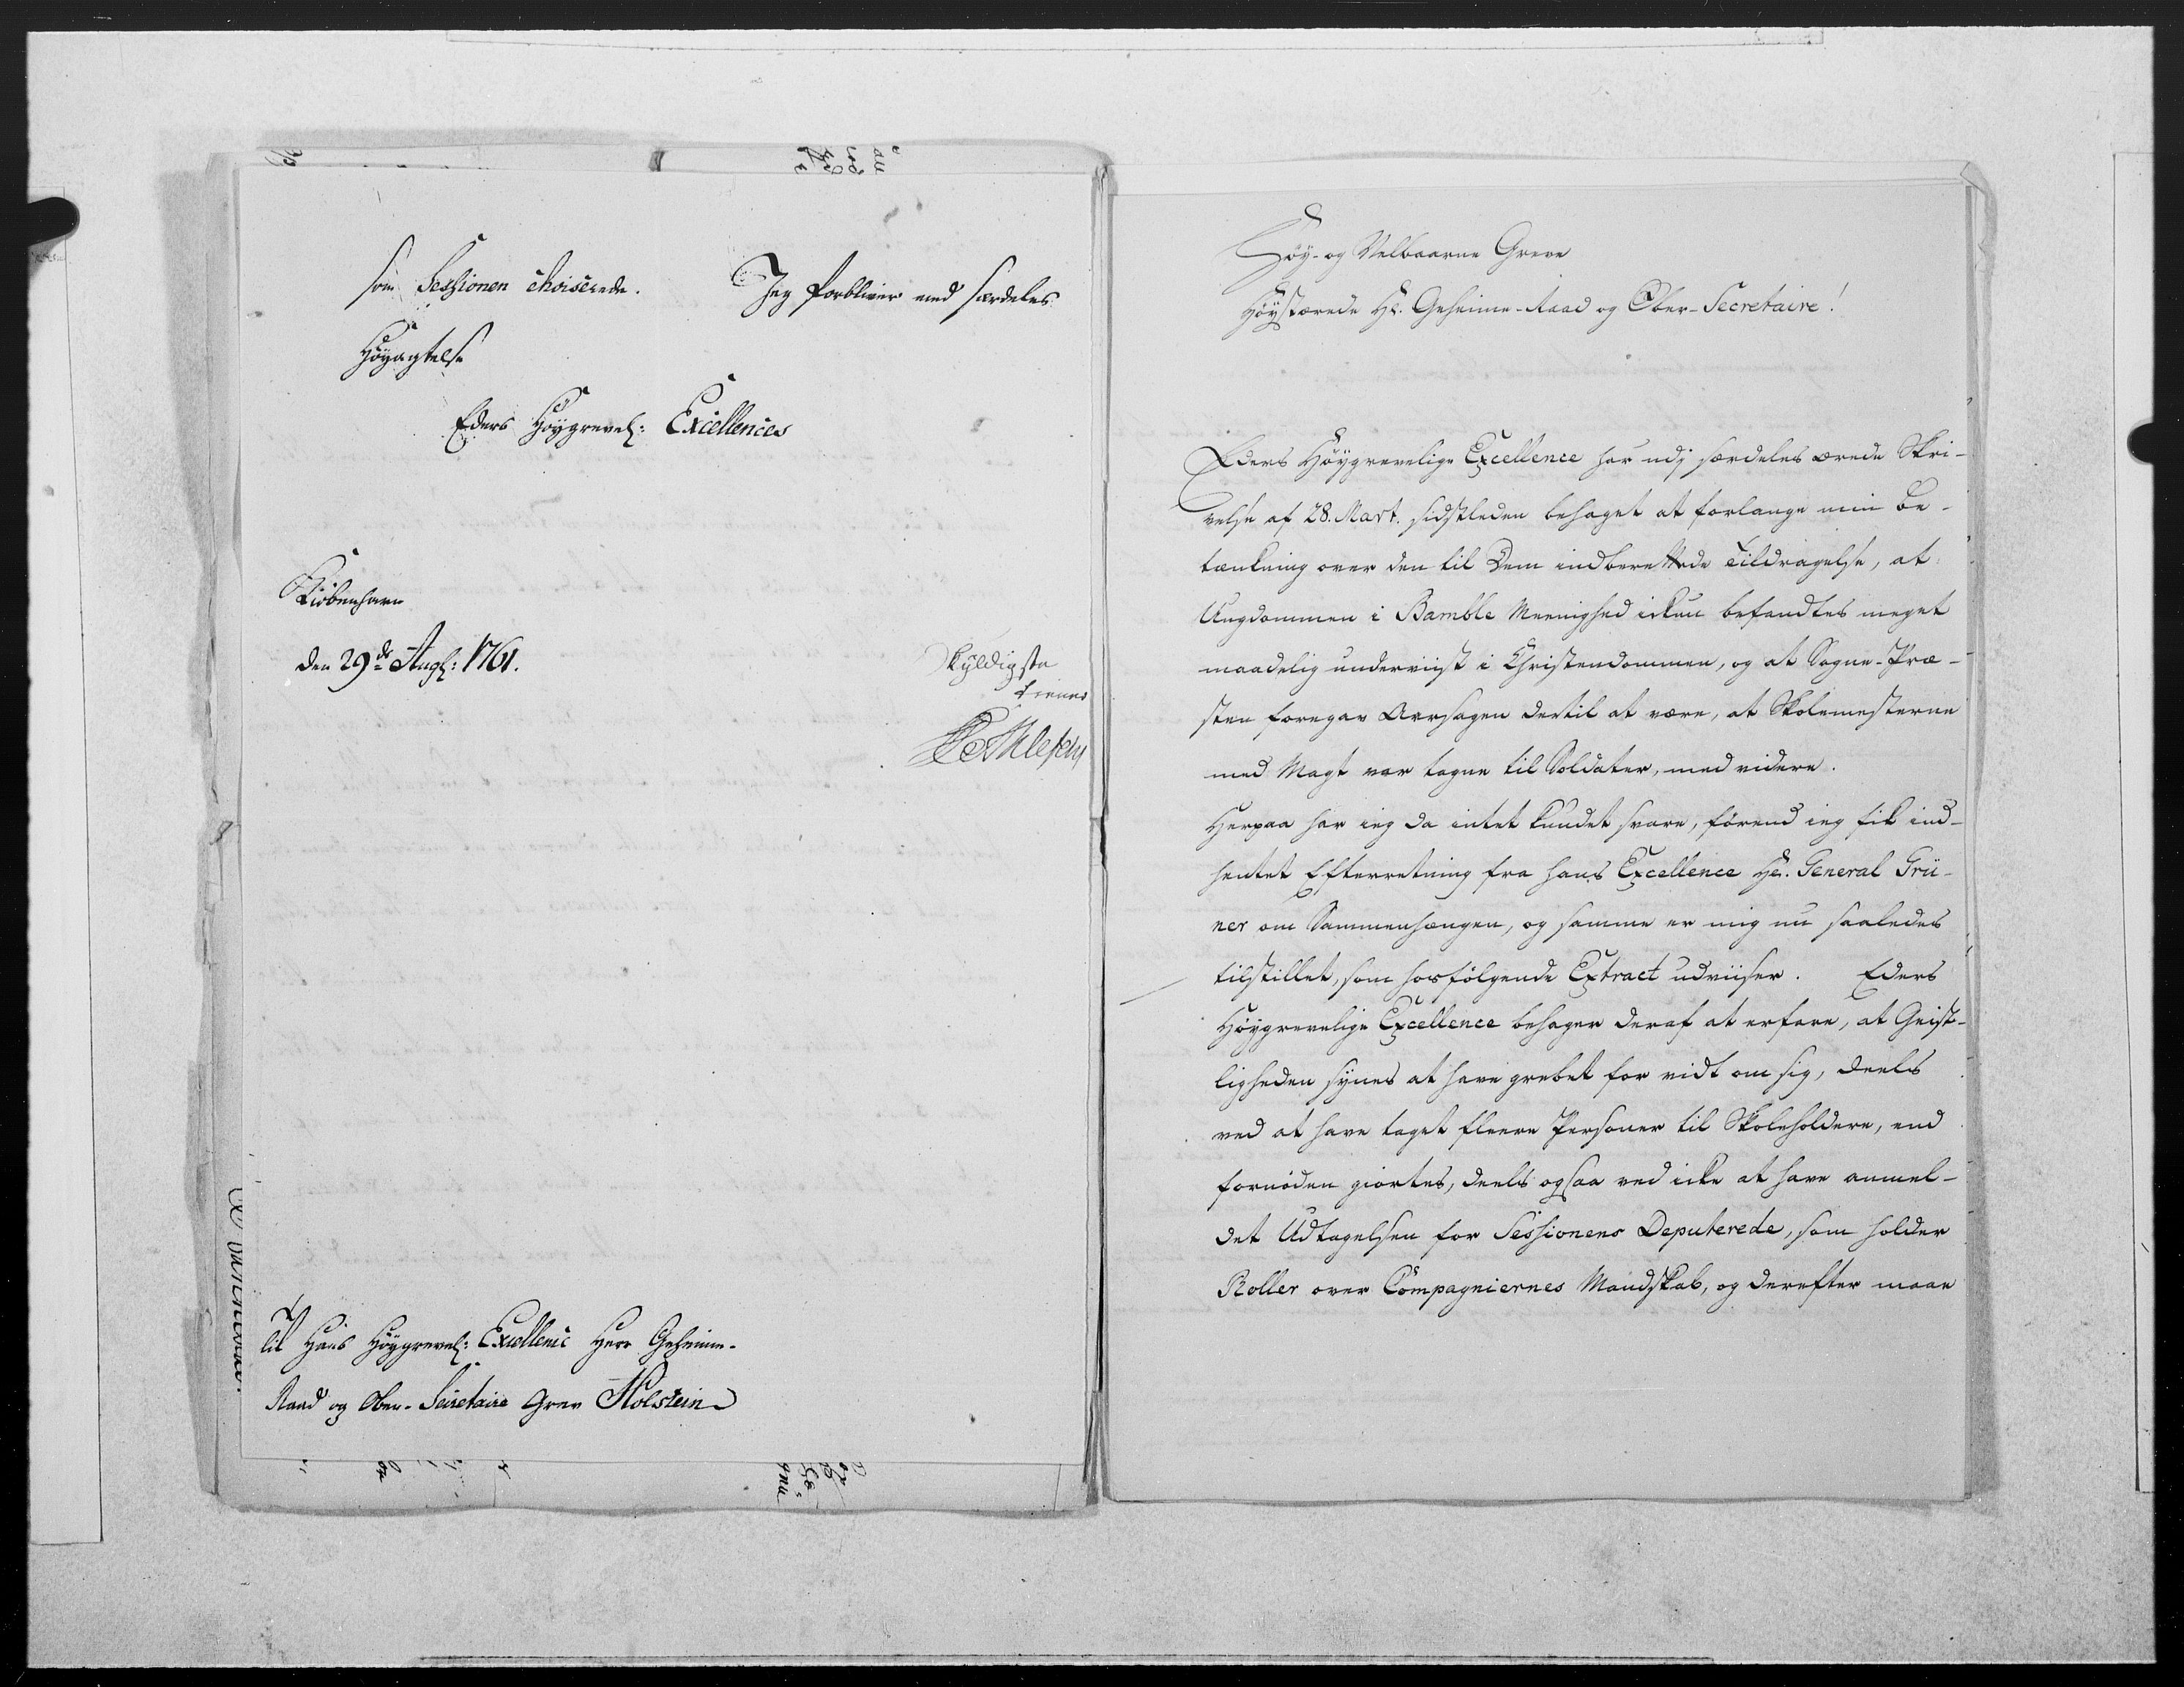 som Sessionen choiserede. Jeg forbliver med særdeles
Høyagtelse
Eders Høygrevel: Excellences
Kiøbenhavn
den 29de Augl: 1761.
skyldigste
tiener
Til Hans Høygrevel: Excellence Herr Geheime-
Raad og Ober-Secretaire Grev Holstein
Høy- og Velbaarne Greve
Høystærede Hr. Geheime-Raad og Ober-Secretaire!
Eders Høygrevelige Excellence har udj særdeles ærede Skri-
velse af 28. Mart. sidstleden behaget at forlange min Be-
tænkning over den til Dem indberettede Tildragelse, at
Ungdommen i Bamble Meenighed ickun befandtes meget
maadelig underviist i Christendommen, og at Sogne-Præ-
sten foregav Aarsagen dertil at være, at Skolemesterne
med Magt var tagne til Soldater, med videre.
Herpaa har ieg da intet kundet svare, førend ieg fik ind-
hentet Efterretning fra hans Excellence Hr. General Grü-
ner om Sammenhængen, og samme er mig nu saaledes
tilstillet, som hosfølgende Extract udviiser. Eders
Høygrevelige Excellence behager deraf at erfare, at Geist-
ligheden synes at have grebet for vidt om sig, deels
ved at have taget fleere Personer til Skoleholdere, end
fornøden giortes, deels ogsaa ved icke at have anmel-
det Udtagelsen for Sessionens Deputerede, som holder
Roller over Compagniernes Mandskab, og derefter maae